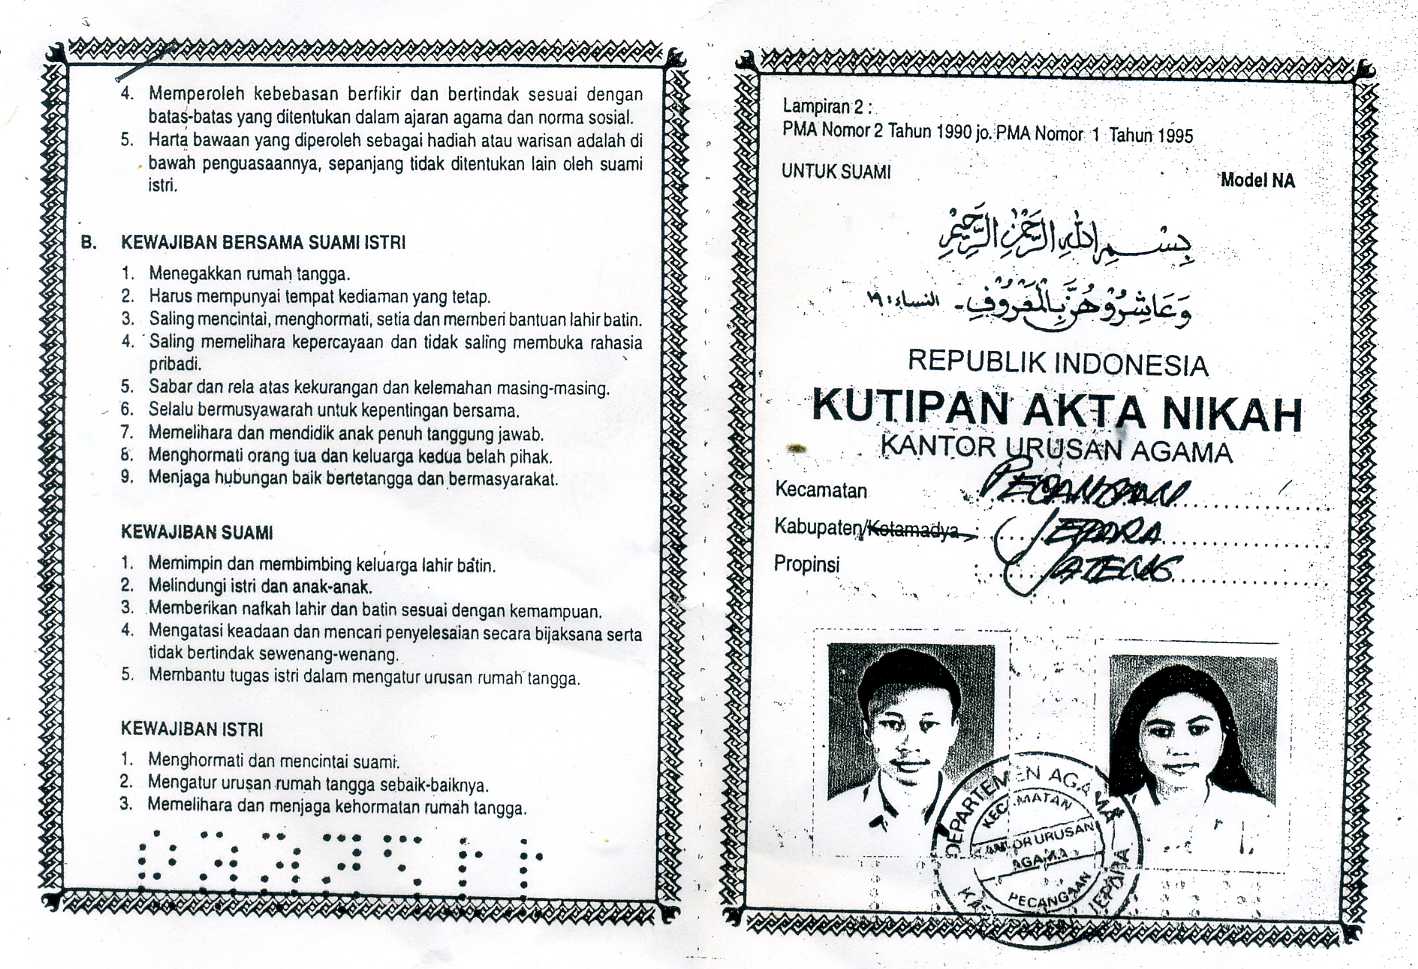 4. Memperoleh kebebasan berfikir dan bertindak sesuai dengan
batas-batas yang ditentukan dalam ajaran agama dan norma sosial.
5. Harta bawaan yang diperoleh sebagai hadiah atau warisan adalah di
bawah penguasaannya, sepanjang tidak ditentukan lain oleh suami
istri.
B. KEWAJIBAN BERSAMA SUAMI ISTRI
1. Menegakkan rumah tangga.
2. Harus mempunyai tempat kediaman yang tetap.
3. Saling mencintai, menghormati, setia dan memberi bantuan lahir batin.
4. Saling memelihara kepercayaan dan tidak saling membuka rahasia
pribadi.
5. Sabar dan rela atas kekurangan dan kelemahan masing-masing.
6. Selalu bermusyawarah untuk kepentingan bersama.
7. Memelihara dan mendidik anak penuh tanggung jawab.
8. Menghormati orang tua dan keluarga kedua belah pihak.
9. Menjaga hubungan baik bertetangga dan bermasyarakat.
KEWAJIBAN SUAMI
1. Memimpin dan membimbing keluarga lahir batin.
2. Melindungi istri dan anak-anak.
3. Memberikan nafkah lahir dan batin sesuai dengan kemampuan.
4. Mengatasi keadaan dan mencari penyelesaian secara bijaksana serta
tidak bertindak sewenang-wenang.
5. Membantu tugas istri dalam mengatur urusan rumah tangga.
KEWAJIBAN ISTRI
1. Menghormati dan mencintai suami.
2. Mengatur urusan rumah tangga sebaik-baiknya.
3. Memelihara dan menjaga kehormatan rumah tangga.
Lampiran 2 :
PMA Nomor 2 Tahun 1990 jo. PMA Nomor 1 Tahun 1995
UNTUK SUAMI
Model NA
بِسْمِ اللهِ الرَّحْمٰنِ الرَّحِيْمِ
وَعَاشِرُوْهُنَّ بِالْمَعْرُوْفِ - النساء : ١٩
REPUBLIK INDONESIA
KUTIPAN AKTA NIKAH
KANTOR URUSAN AGAMA
Kecamatan : PECANGAAN
Kabupaten/Kotamadya : JEPARA
Propinsi : JATENG
DEPARTEMEN AGAMA
KECAMATAN
KANTOR URUSAN
AGAMA
PECANGAAN
JEPARA